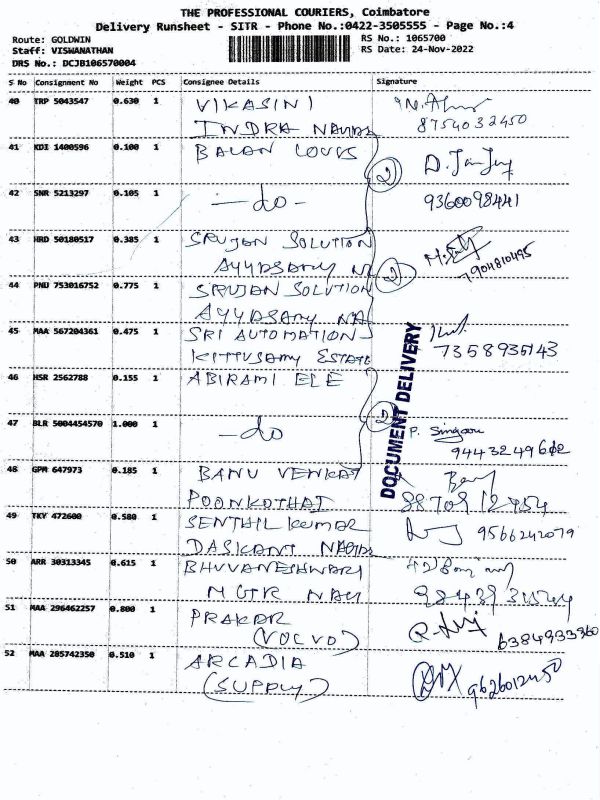 THE PROFESSIONAL COURIERS, Coimbatore
Delivery Runsheet - SITR - Phone No.:0422-3505555 - Page No.:4
Route: GOLDWIN
Staff: VISWANATHAN
DRS No.: DCJB106570004
RS No.: 1065700
RS Date: 24-Nov-2022
S No Consignment No Weight PCS Consignee Details Signature
40 TRP 5043547 0.630 1 VIKASINI
INDRA
8754032450
41 KDI 1400596 0.100 1 BALAN
2
42 SNR 5213297 0.105 1 -do-
9360098441
43 HRD 50180517 0.385 1 SRUJAN SOLUTION
AYYASAMY
7904810495
2
44 PNU 753016752 0.775 1 SRUJAN SOLUTION
AYYASAMY NA
45 MAA 567204361 0.475 1 SRI AUTOMATION
KITTUSAMY ESTATE
7358936143
46 HSR 2562788 0.155 1 ABIRAMI ELE
DOCUMENT DELIVERY
2
47 BLR 5004454570 1.000 1 -do
P.
48 GPM 647973 0.185 1 BANU VENKAT
POONKOTHAI
49 TKY 472600 0.580 1 SENTHIL KUMAR
9566242079
50 ARR 30313345 0.615 1 BHUVANESHWARI
MGTR
51 MAA 296462257 0.800 1 PRAKAR
(VOLVO)
6384933360
52 MAA 285742350 0.510 1 ARCADIA
(SUPPLY)